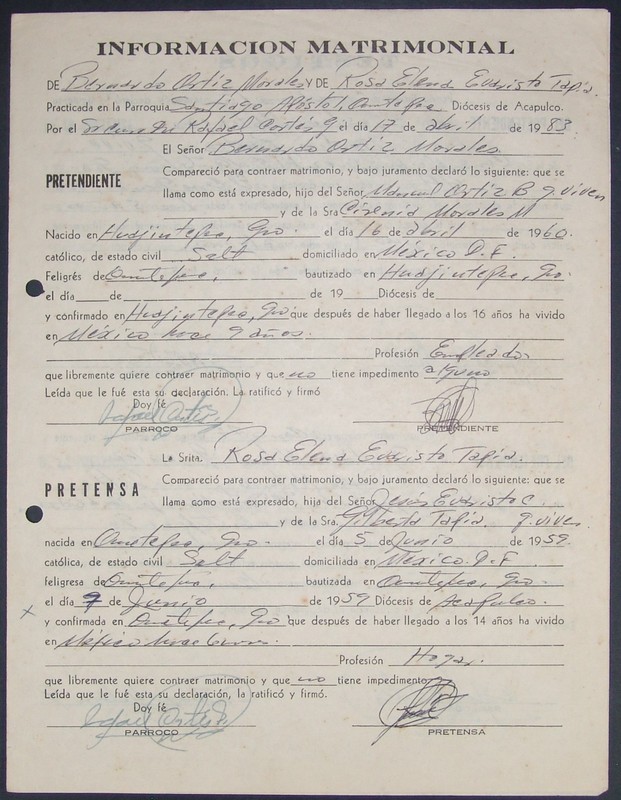 INFORMACION MATRIMONIAL
DE Bernardo Ortiz Morales Y DE Rosa Elena Evaristo Tapia.
Practicada en la Parroquia Santiago Apistol, Ometepec Diócesis de Acapulco.
Por el Sr Cura Rafael Cortés G el día 17 de abril de 1983.
El Señor Bernardo Ortiz Morales.
PRETENDIENTE
Compareció para contraer matrimonio, y bajo juramento declaró lo siguiente: que se
llama como está expresado, hijo del Señor Manuel Ortiz B q. viven
y de la Sra Morales M
Nacido en Gro. el día 16 de abril de 1960.
católico, de estado civil Solt domiciliado en México D.F.
Feligrés de Ometepec, bautizado en Gro.
el día de de 19 Diócesis de
y confirmado en Gro que después de haber llegado a los 16 años ha vivido
en México hace 9 años.
Profesión Empleado
que libremente quiere contraer matrimonio y que no tiene impedimento alguno
Leída que le fué esta su declaración. La ratificó y firmó
Doy fé
PARROCO PRETENDIENTE
La Srita. Rosa Elena Evaristo Tapia.
PRETENSA
Compareció para contraer matrimonio, y bajo juramento declaró lo siguiente: que se
llama como está expresado, hija del Señor Jesús Evaristo C.
y de la Sra. Gilberta Tapia. q. viven.
nacida en Ometepec, Gro. el día 5 de Junio de 1959.
católica, de estado civil Solt domiciliada en México D.F
feligresa de Ometepec. bautizada en Ometepec, Gro.
el día 9 de Junio de 1959 Diócesis de Acapulco.
y confirmada en Ometepec, Gro que después de haber llegado a los 14 años ha vivido
en México hace
Profesión Hogar.
que libremente quiere contraer matrimonio y que no tiene impedimento
Leída que le fué esta su declaración, la ratificó y firmó.
Doy fé
PARROCO PRETENSA